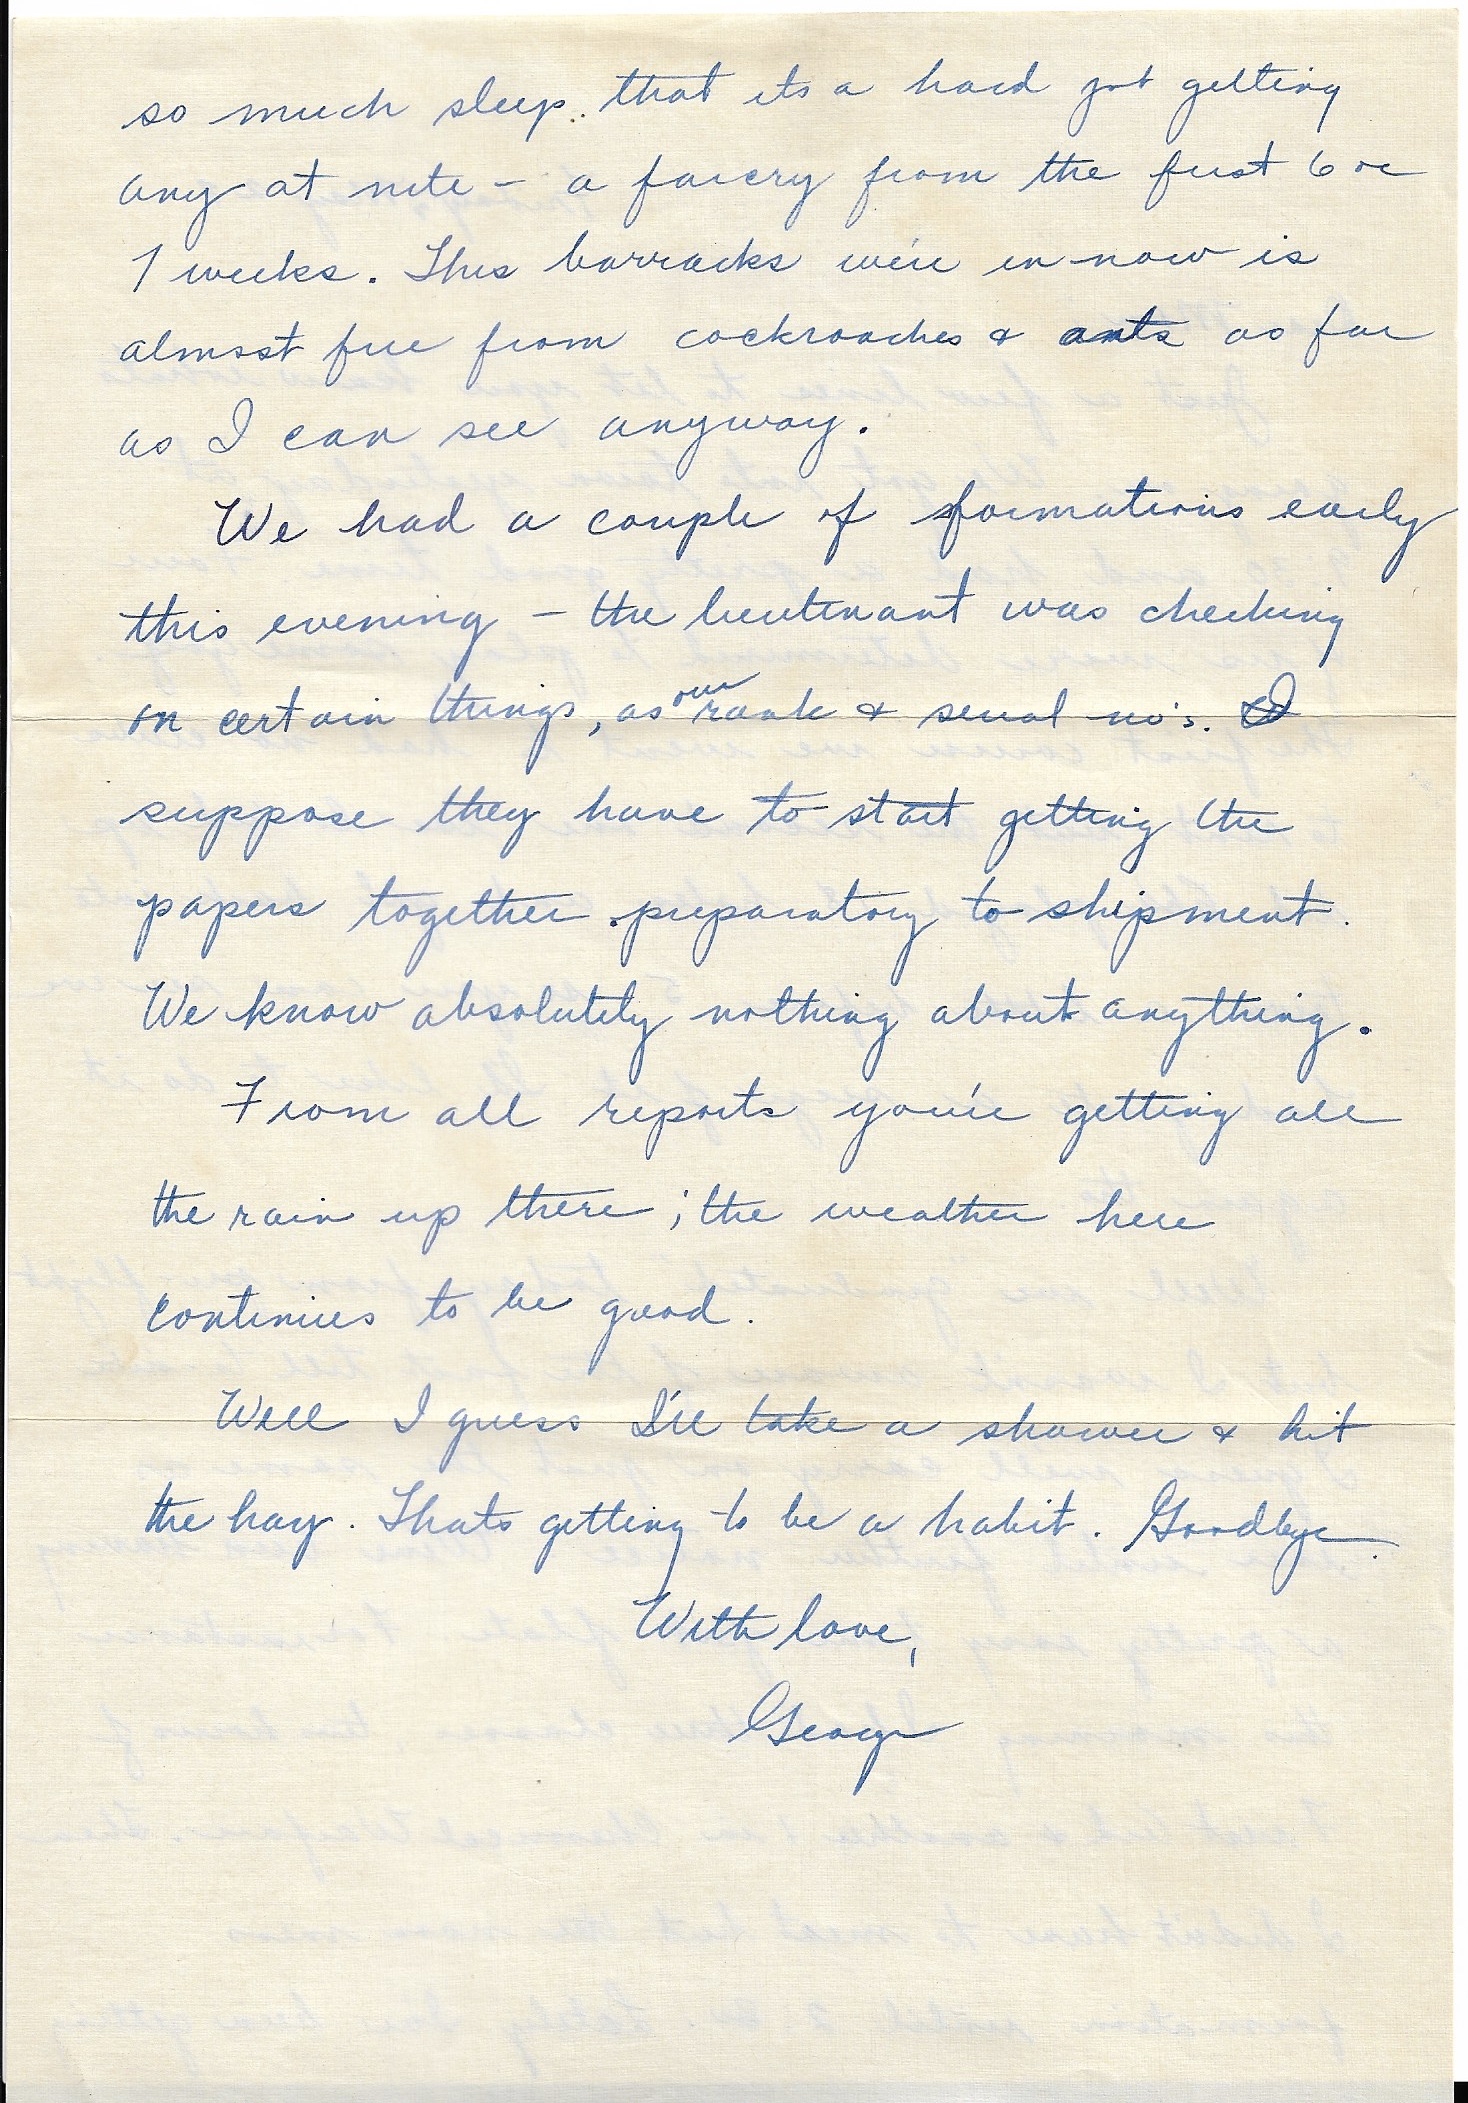 so much sleep that its a hard job getting
any at nite – a farcry from the first 6 or
7 weeks. This barracks we're in now is
almost free from cockroaches & ants as far
as I can see anyway.
We had a couple of formations early
this evening – the lieutenant was checking
on certain things, as our rank & serial no's. I
suppose they have to start getting the
papers together preparatory to shipment.
We know absolutely nothing about anything.
From all reports you're getting all
the rain up there; the weather here
continues to be good.
Well I guess I'll take a shower & hit
the hay. Thats getting to be a habit. Goodbye.
With love,
George